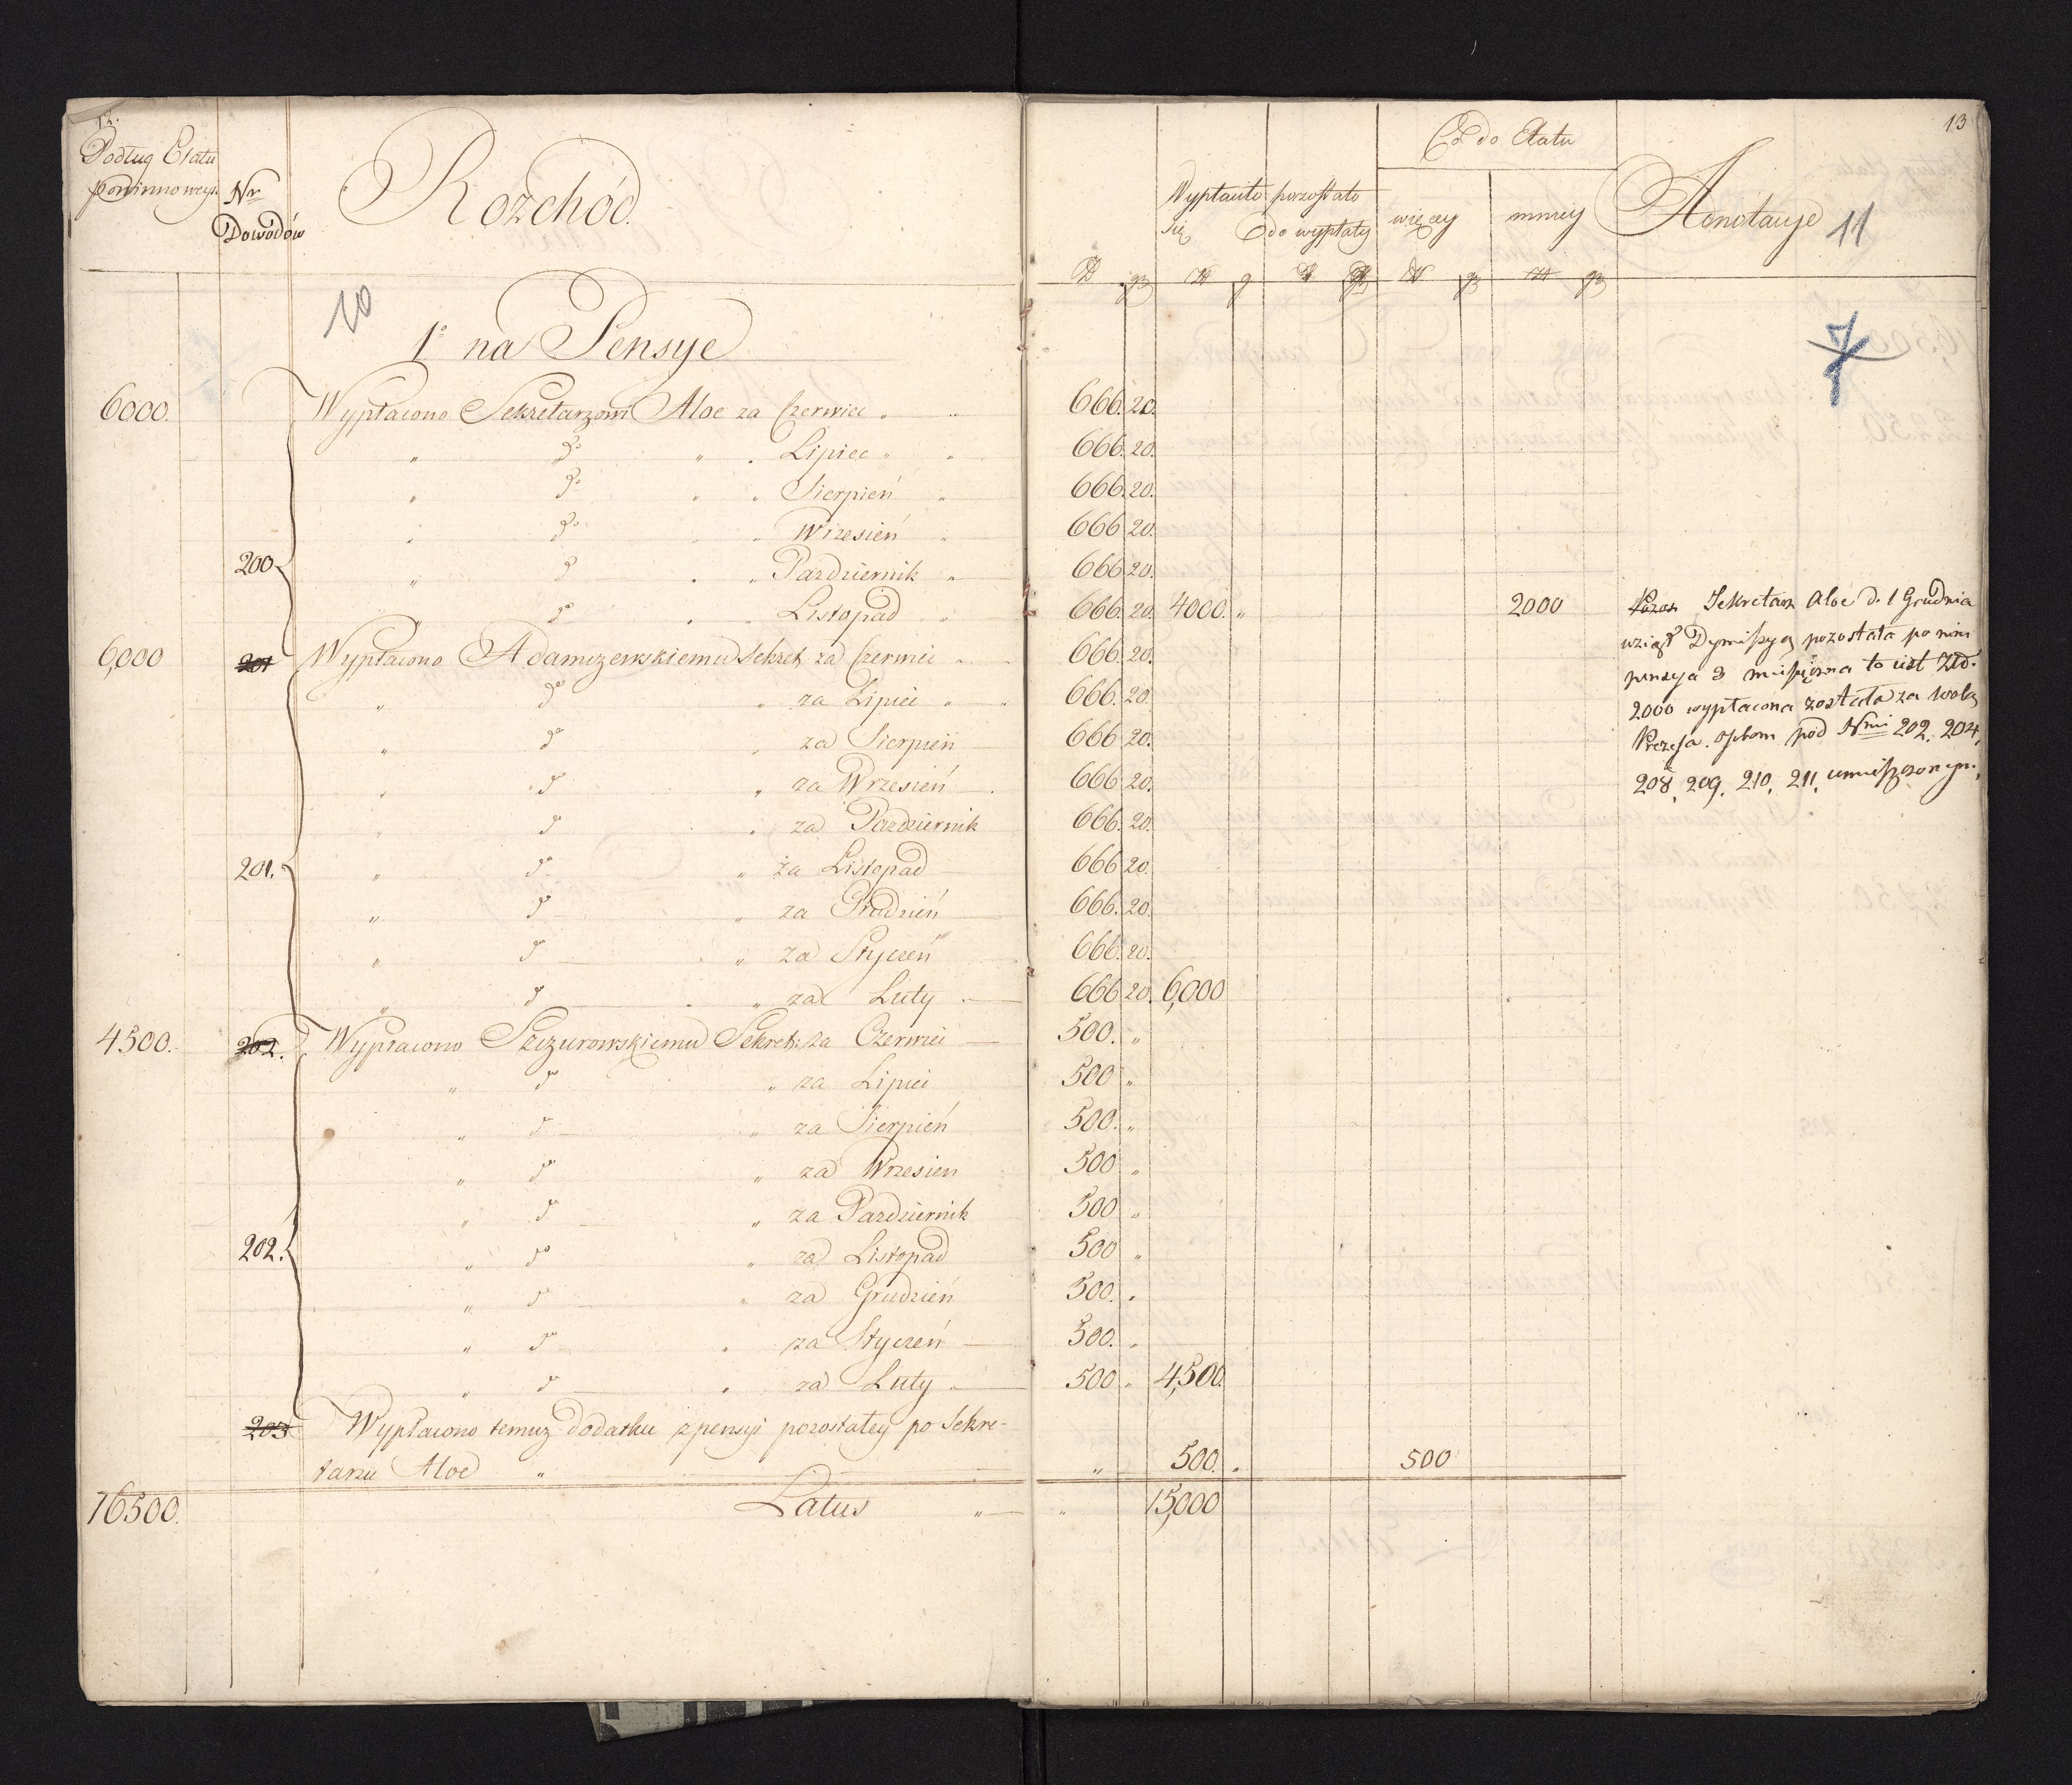 12.
Podług Etatu
powinno wyiś
Nr
Dowodów
Rozchód.
10
1o na Pensye
6000. Wypłacono Sekretarzowi Aloe za Czerwiec " "
" do " . Lipiec " "
" do " " Sierpień "
" do " " Wrzesień "
200 " do " " Pazdziernik "
" do " " Listopad "
6,000 201 Wypłacono Adamczewskiemu Sekret. za Czerwiec "
" do " za Lipiec " "
" do " za Sierpień
" do " za Wrzesień
" do " za Pazdziernik
201. " do " za Listopad
" do " za Grudzień
" do " za Styczeń
" do " za Luty
4500. 202. Wypłacono Szczurowskiemu Sekret: za Czerwiec
" do " za Lipiec
" do " za Sierpień
" do " za Wrzesien
" do " za Pazdziernik
202. " do " za Listopad
" do " za Grudzień
" do " za Styczeń
" do " za Luty
203 Wypłacono temuz dodatku z pensyi pozostałey po Sekre-
tarzu Aloe "
16500. Latus "
13
Co do Etatu
Wypłaciło pozostało
się do wypłaty
więcey mniey
Annotacye 11
7
666. 20.
666. 20.
666. 20.
666 20.
666 20.
666. 20. 4000. " 2000
666. 20.
666. 20.
666 20.
666. 20.
666. 20.
666 20.
666. 20.
666. 20.
666 20. 6,000
500. "
500 "
500. "
500 "
500 "
500 "
500. "
500. "
500 " 4,500.
" 500. " 500
" 15,000
Sekretarz Aloe d. 1 Grudnia
wziął Dymissyą pozostała po nim
pensya 3 miesięczna to iest Złp.
2000 wypłacona została za wolą
Prezesa osobom pod Nrmi 202. 204,
208, 209. 210, 211, umieszczonym.